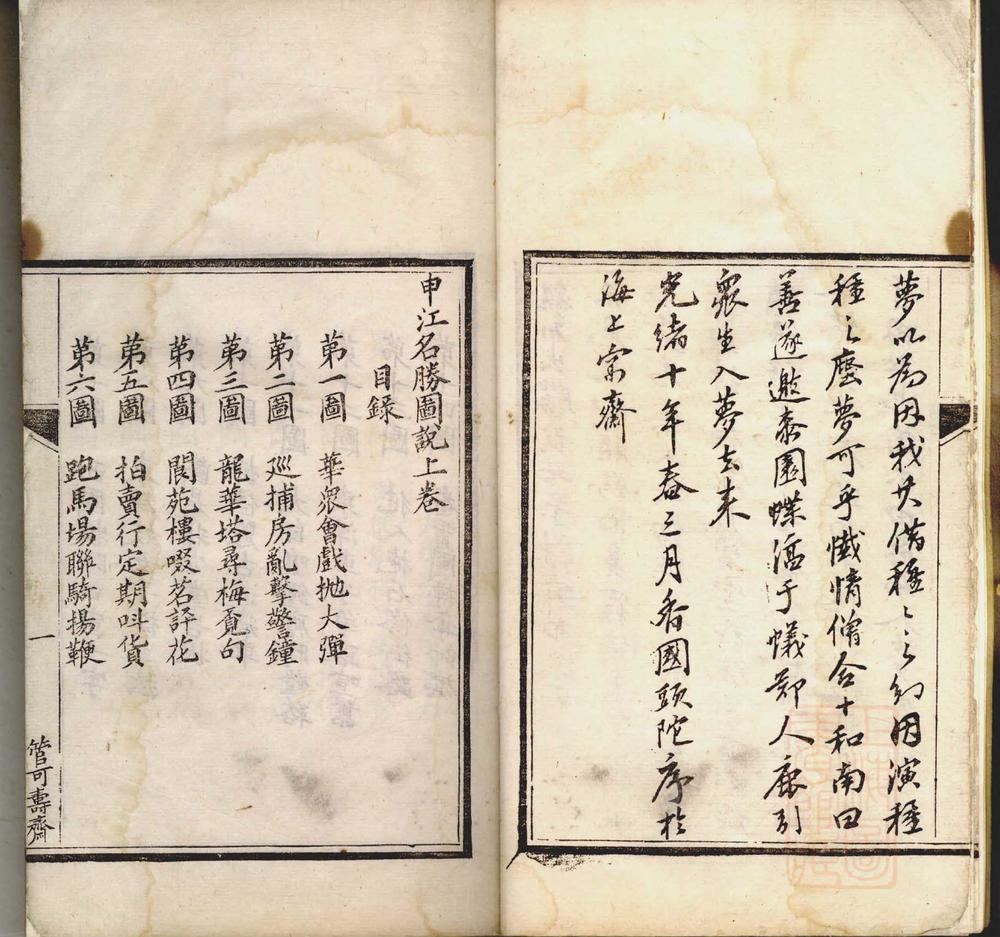 夢以為因我其借種々之幻因演種
種之塵夢可乎懺情僧合十和南曰
善遂邀漆園蝶淳于蟻鄭人鹿引
眾生入夢去來
光緒十年春三月香國頭陀序於
海上崇齋
申江名勝圖說上卷
目錄
第一圖 華眾會戲拋大彈
第二圖 巡捕房亂擊警鐘
第三圖 龍華塔尋梅覓句
第四圖 閬苑樓啜茗評花
第五圖 拍賣行定期呌貨
第六圖 跑馬場聯騎揚鞭
一
管可壽齋